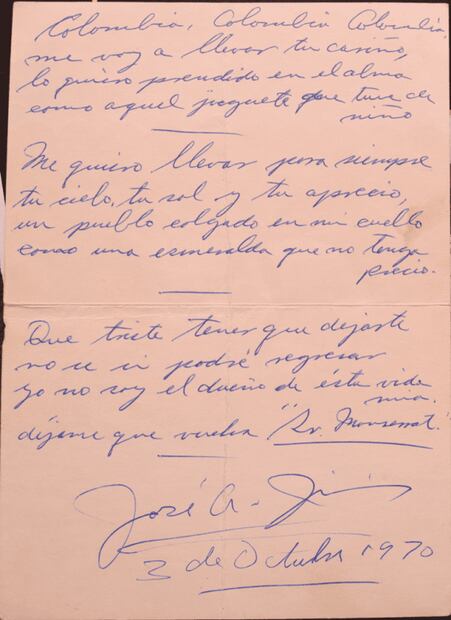 Colombia, Colombia Colombia,
me voy a llevar tu cariño,
lo quiero prendido en el alma
como aquel juguete que tuve de
niño
Me quiero llevar para siempre
tu cielo, tu sol y tu aprecio,
un pueblo colgado en mi cuello
como una esmeralda que no tenga
precio.
Que triste tener que dejarte
no se si podré regresar
yo no soy el dueño de ésta vida
mia.
déjame que vuelva "Sr. Monserrat."
José A. Jim
3 de Octubre 1970